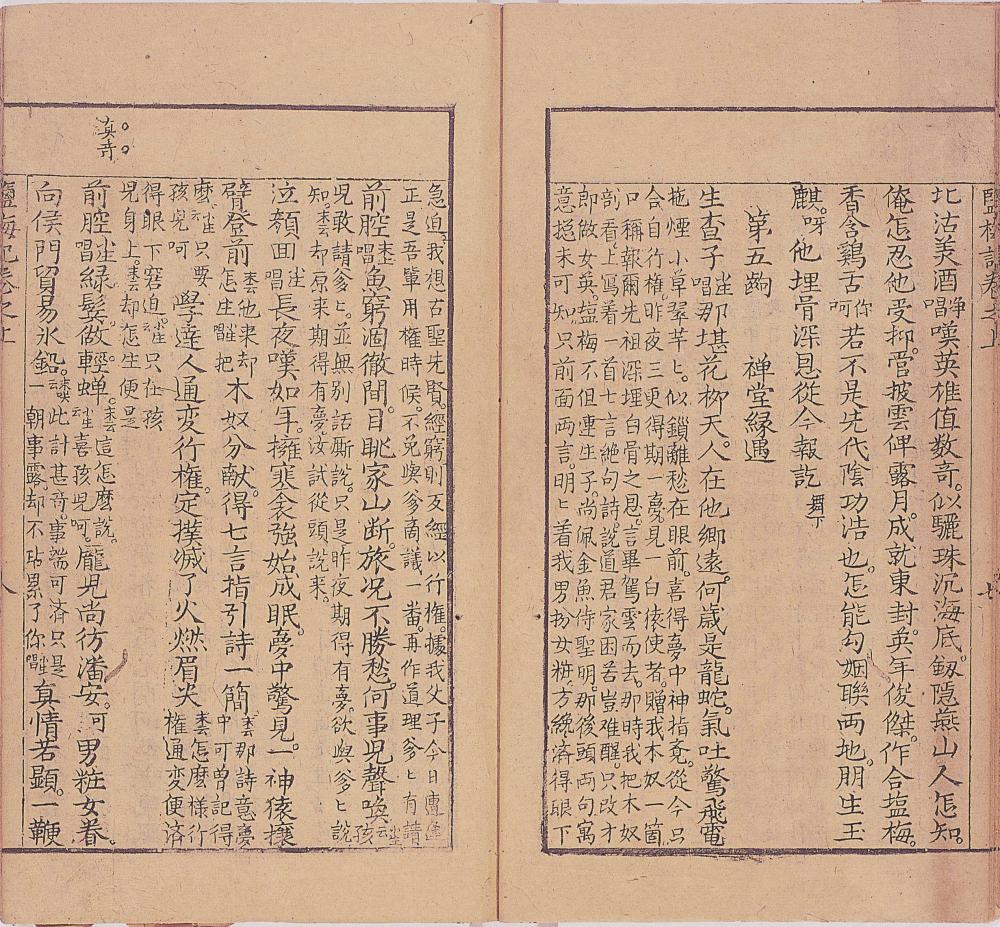 鹽梅記卷之上
北沽美酒淨唱嘆英雄值数奇。似驪珠沉海底。劔隱燕山人怎知。
俺怎忍他受抑。啻披雲俾露月。成就東封。英年俊傑。作合塩梅。
香含鷄舌呵你若不是先代陰功浩也。怎能勾姻聯两地。朋生玉
麒。呀他埋骨深恩從今報訖舞下
第五齣 禅堂縁遇
生查子唱那堪花柳天。人在他鄉遠。何歲是龍蛇。氣吐驚飛電
拖煙小草翠芊〻。似鎖離愁在眼前。喜得夢中神指覔。從今只
合自行權。昨夜三更得期一夢。見一白猿使者。贈我木奴一箇
口稱報爾先祖深埋白骨之恩。言畢駕雲而去。那時我把木奴
剖看。上寫着一首七言絶句詩。說道君家困苦豈难醒。只改才
郎做女英。塩梅不但連生子。尚佩金魚侍聖明。那後頭两句寓
意摠未可知。只前面两言。明〻着我男扮女粧。方纔済得眼下
急迫。我想古聖先賢。經窮則反經以行權。據我父子今日
正是吾軰用權時候。不免與爹商議一番。再作道理爹〻有請
前腔唱魚窮涸徹間。目眺家山断。旅况不勝愁。何事兒聲喚云孩
兒敢請爹〻。並無別話厮說。只是昨夜期得有夢。欲與爹〻說
知。云却原来期得有夢汝試從頭說来。
泣顔囬唱長夜嘆如年。擁寒衾強始成眠。夢中驚見。一神猿攘
臂登前他来却怎生唱把木奴分献。得七言指引詩一簡那詩意夢中可曾記得
麽云只要孩兒呵學達人通変行權。定撲㓕了火燃眉尖怎麽様行權通変便済
得眼下窘迫。云只在孩兒身上。却怎生便是
前腔唱緑鬓做輕蝉。這怎麽說。云喜孩兒呵。龎兒尚彷潘安。可男粧女眷。
向侯門貿易氷鉛。云此計甚奇。事端可済只是一朝事露。却不玷累了你唱真情若顕。一鞭
真奇
鹽梅記卷之上
八